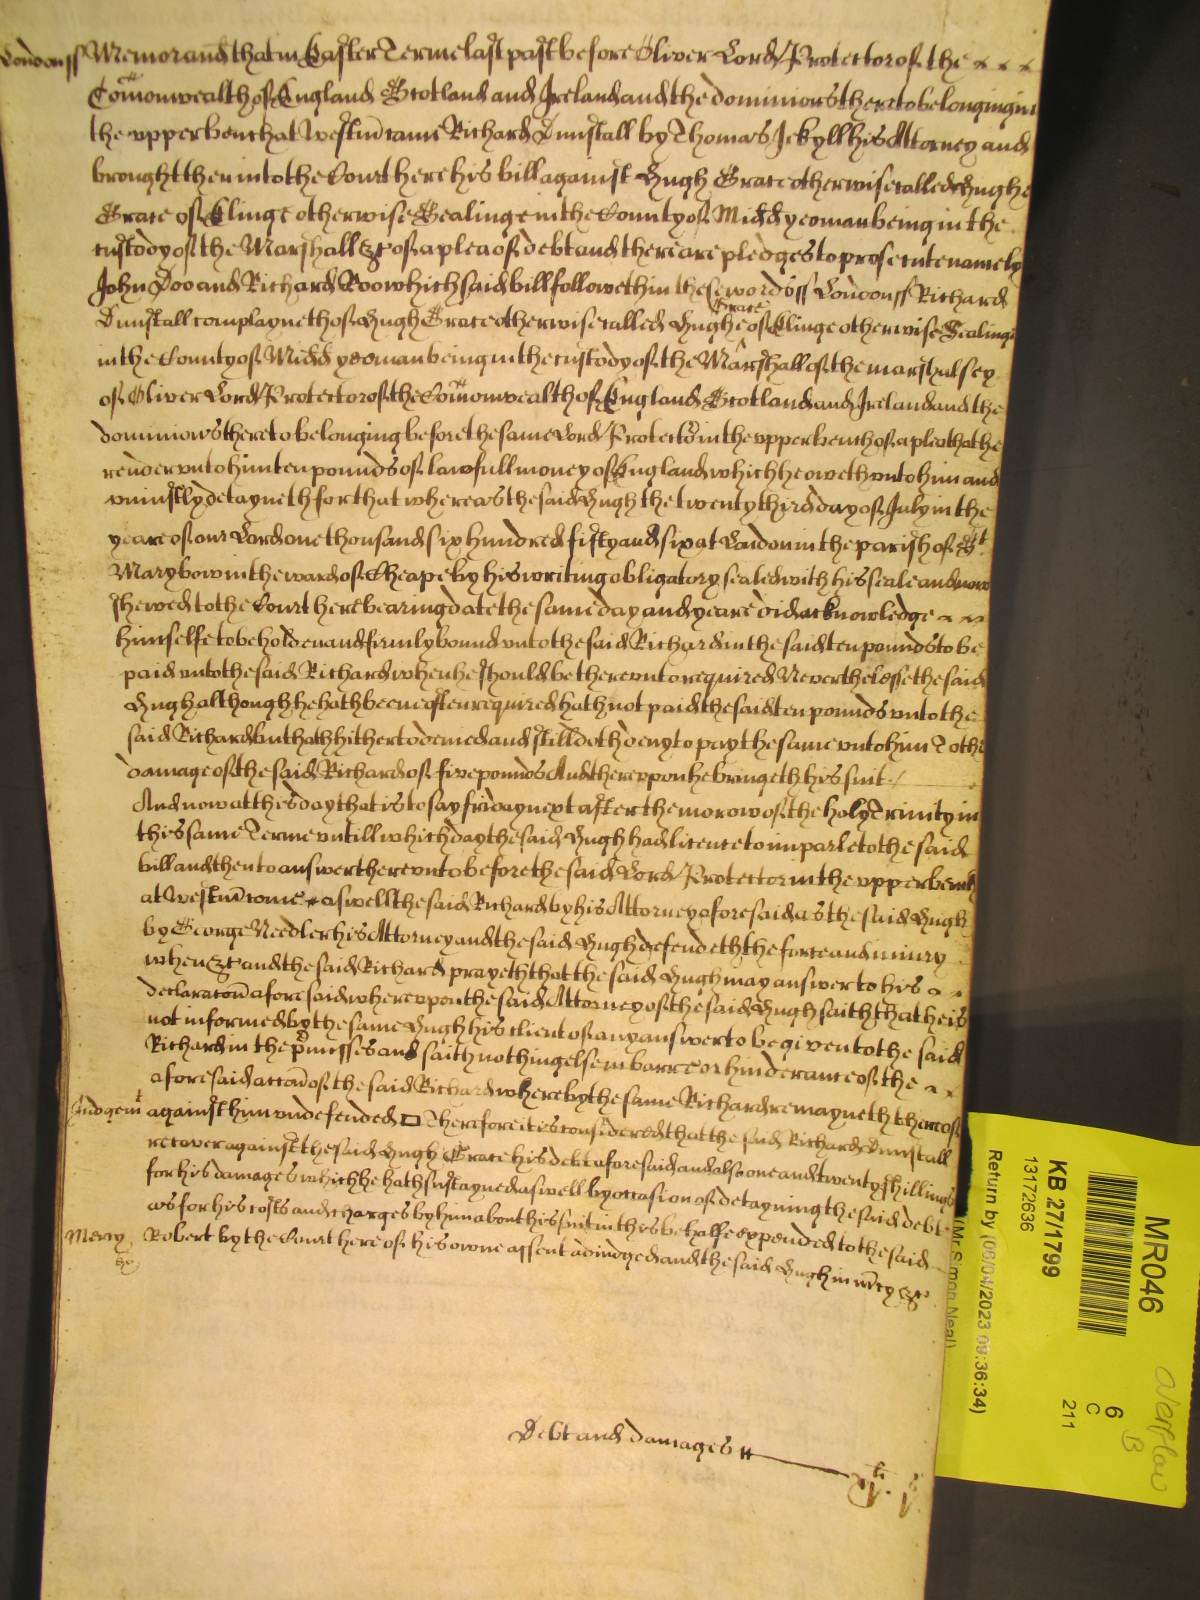 London ss Memorand that in Easter Terme last past before Oliver Lord Protector of the
Comonwealth of England Scotland and Ireland and the dominions thereto belonging in
the vpper bench at Westmr came Richard Dunstall by Thomas Jekyll his Attorney and
brought then into the Court here his bill against Hugh Grace otherwise called Hughe
Grace of Elinge otherwise Gealinge in the County of Midd yeoman being in the
custody of the Marshall &c of a plea of debt and there are pledges to prosecute namely
John Doo and Richard Roo which said bill followeth in these words ss London ss Richard
Dunstall complayneth of Hugh Grace otherwise called Hughe Grace of Elinge otherwise Gealinge
in the County of Midd yeoman being in the custody of the Marshall of the marshalsey
of Oliver Lord Protector of the Comonwealth of England Scotland and Ireland and the
dominions thereto belonging before the same Lord Protector in the vpper bench of a plea that he
render vnto him ten pounds of lawfull money of England which he oweth vnto him and
vniustly detayneth for that whereas the said Hugh the twenty third day of July in the
yeare of our Lord one thousand six hundred fifty and six at London in the parish of St
Mary bow in the ward of Cheape by his writing obligatory sealed with his seale and now
shewed to the Court here bearing date the same day and yeare did acknowledge
himselfe to be holden and firmly bound vnto the said Richard in the said ten pounds to be
paid vnto the said Richard when he should be therevnto required Neverthelesse the said
Hugh although he hath beene often required hath not paid the said ten pounds vnto the
said Richard but hath hitherto denied and still doth deny to pay the same vnto him To the
damage of the said Richard of five pounds And therevpon he bringeth his suit
And now at this day that is to say friday next after the morow of the holy Trinity in
this same Terme vntill which day the said Hugh had licence to imparle to the said
bill and then to answer therevnto before the said Lord Protector in the vpper bench
at Westm come aswell the said Richard by his Attorney aforesaid as the said Hugh
by George Needler his Attorney and the said Hugh defendeth the force and iniury
when &c and the said Richard prayeth that the said Hugh may answer to his
declaracon aforesaid wherevpon the said Attorney of the said Hugh saith that he is
not informed by the same Hugh his client of any answer to be given to the said
Richard in the pmisses and saith nothing else in barre or hinderance of the
aforesaid accon of the said Richard whereby the same Richard remayneth thereof
Judgemt against him vndefended Therefore it is considered that the said Richard Dunstall
recover against the said Hugh Grace his debt aforesaid and also one and twenty shillings
for his damages which he hath sustayned aswell by occasion of detayning the said debt
as for his costs and charges by him about his suit in this behalfe expended to the said
Mercy &c Robert by the Court here of his owne assent adiudged and the said Hugh in mcy &c
Debt and damages
MR046
KB 27/1799
13172636
Return by (06/04/2023 09:36:34)
(Mr Simon Neal)
6
C
211
Overflow
B